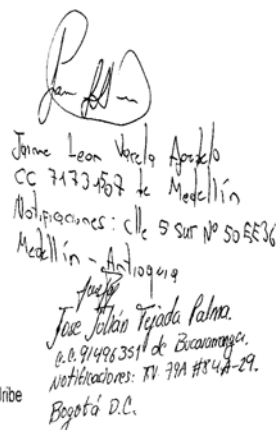 Jaime Leon Varela Agudelo
CC 7173507 de Medellín
Notificaciones: clle 5 sur Nº 50SE36
Medellín - Antioquia
Jose Julián Tejada Palma.
C.C. 91496351 de Bucaramanga.
Notificaciones: TV. 79A #84A-29.
Uribe
Bogotá D.C.